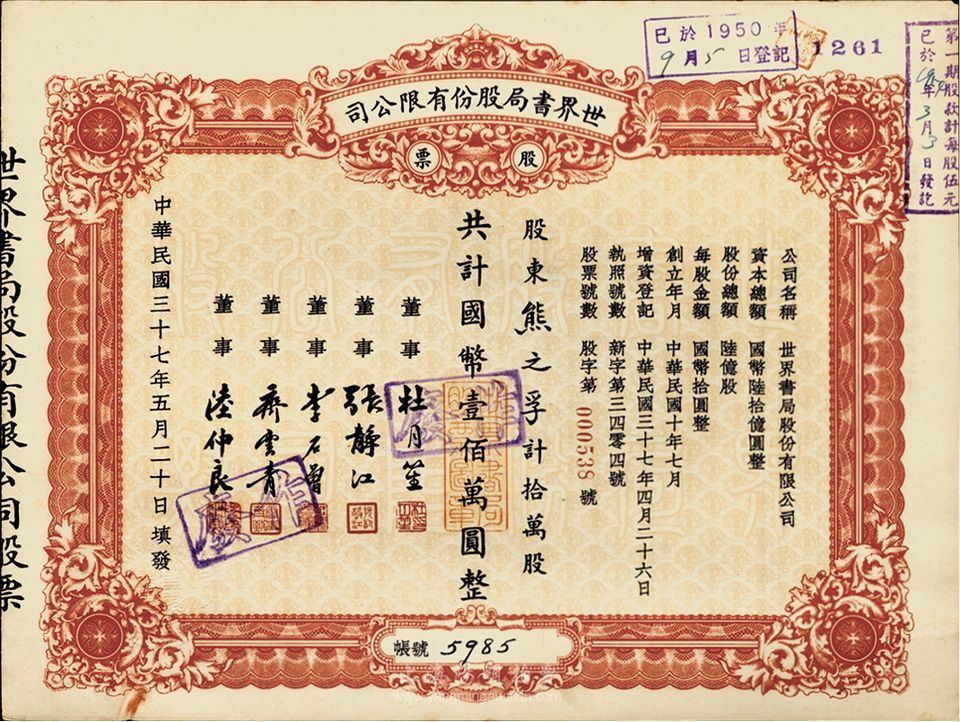 已於1950年
9月5日登記
1261
第一期股款計每股伍元
世界書局股份有限公司
股票
公司名稱 世界書局股份有限公司
資本總額 國幣陸拾億圓整
股份總額 陸億股
每股金額 國幣拾圓整
創立年月 中華民國十年七月
增資登記 中華民國三十七年四月二十六日
執照號數 新字第三四零四號
股票號數 股字第 000538 號
股東熊之孚計拾萬股
共計國幣壹佰萬圓整
董事 杜月笙
董事 張靜江
董事 李石曾
董事 齊雲青
董事 陸仲良
作廢
作廢
中華民國三十七年五月二十日填發
帳號 5985
世界書局股份有限公司股票